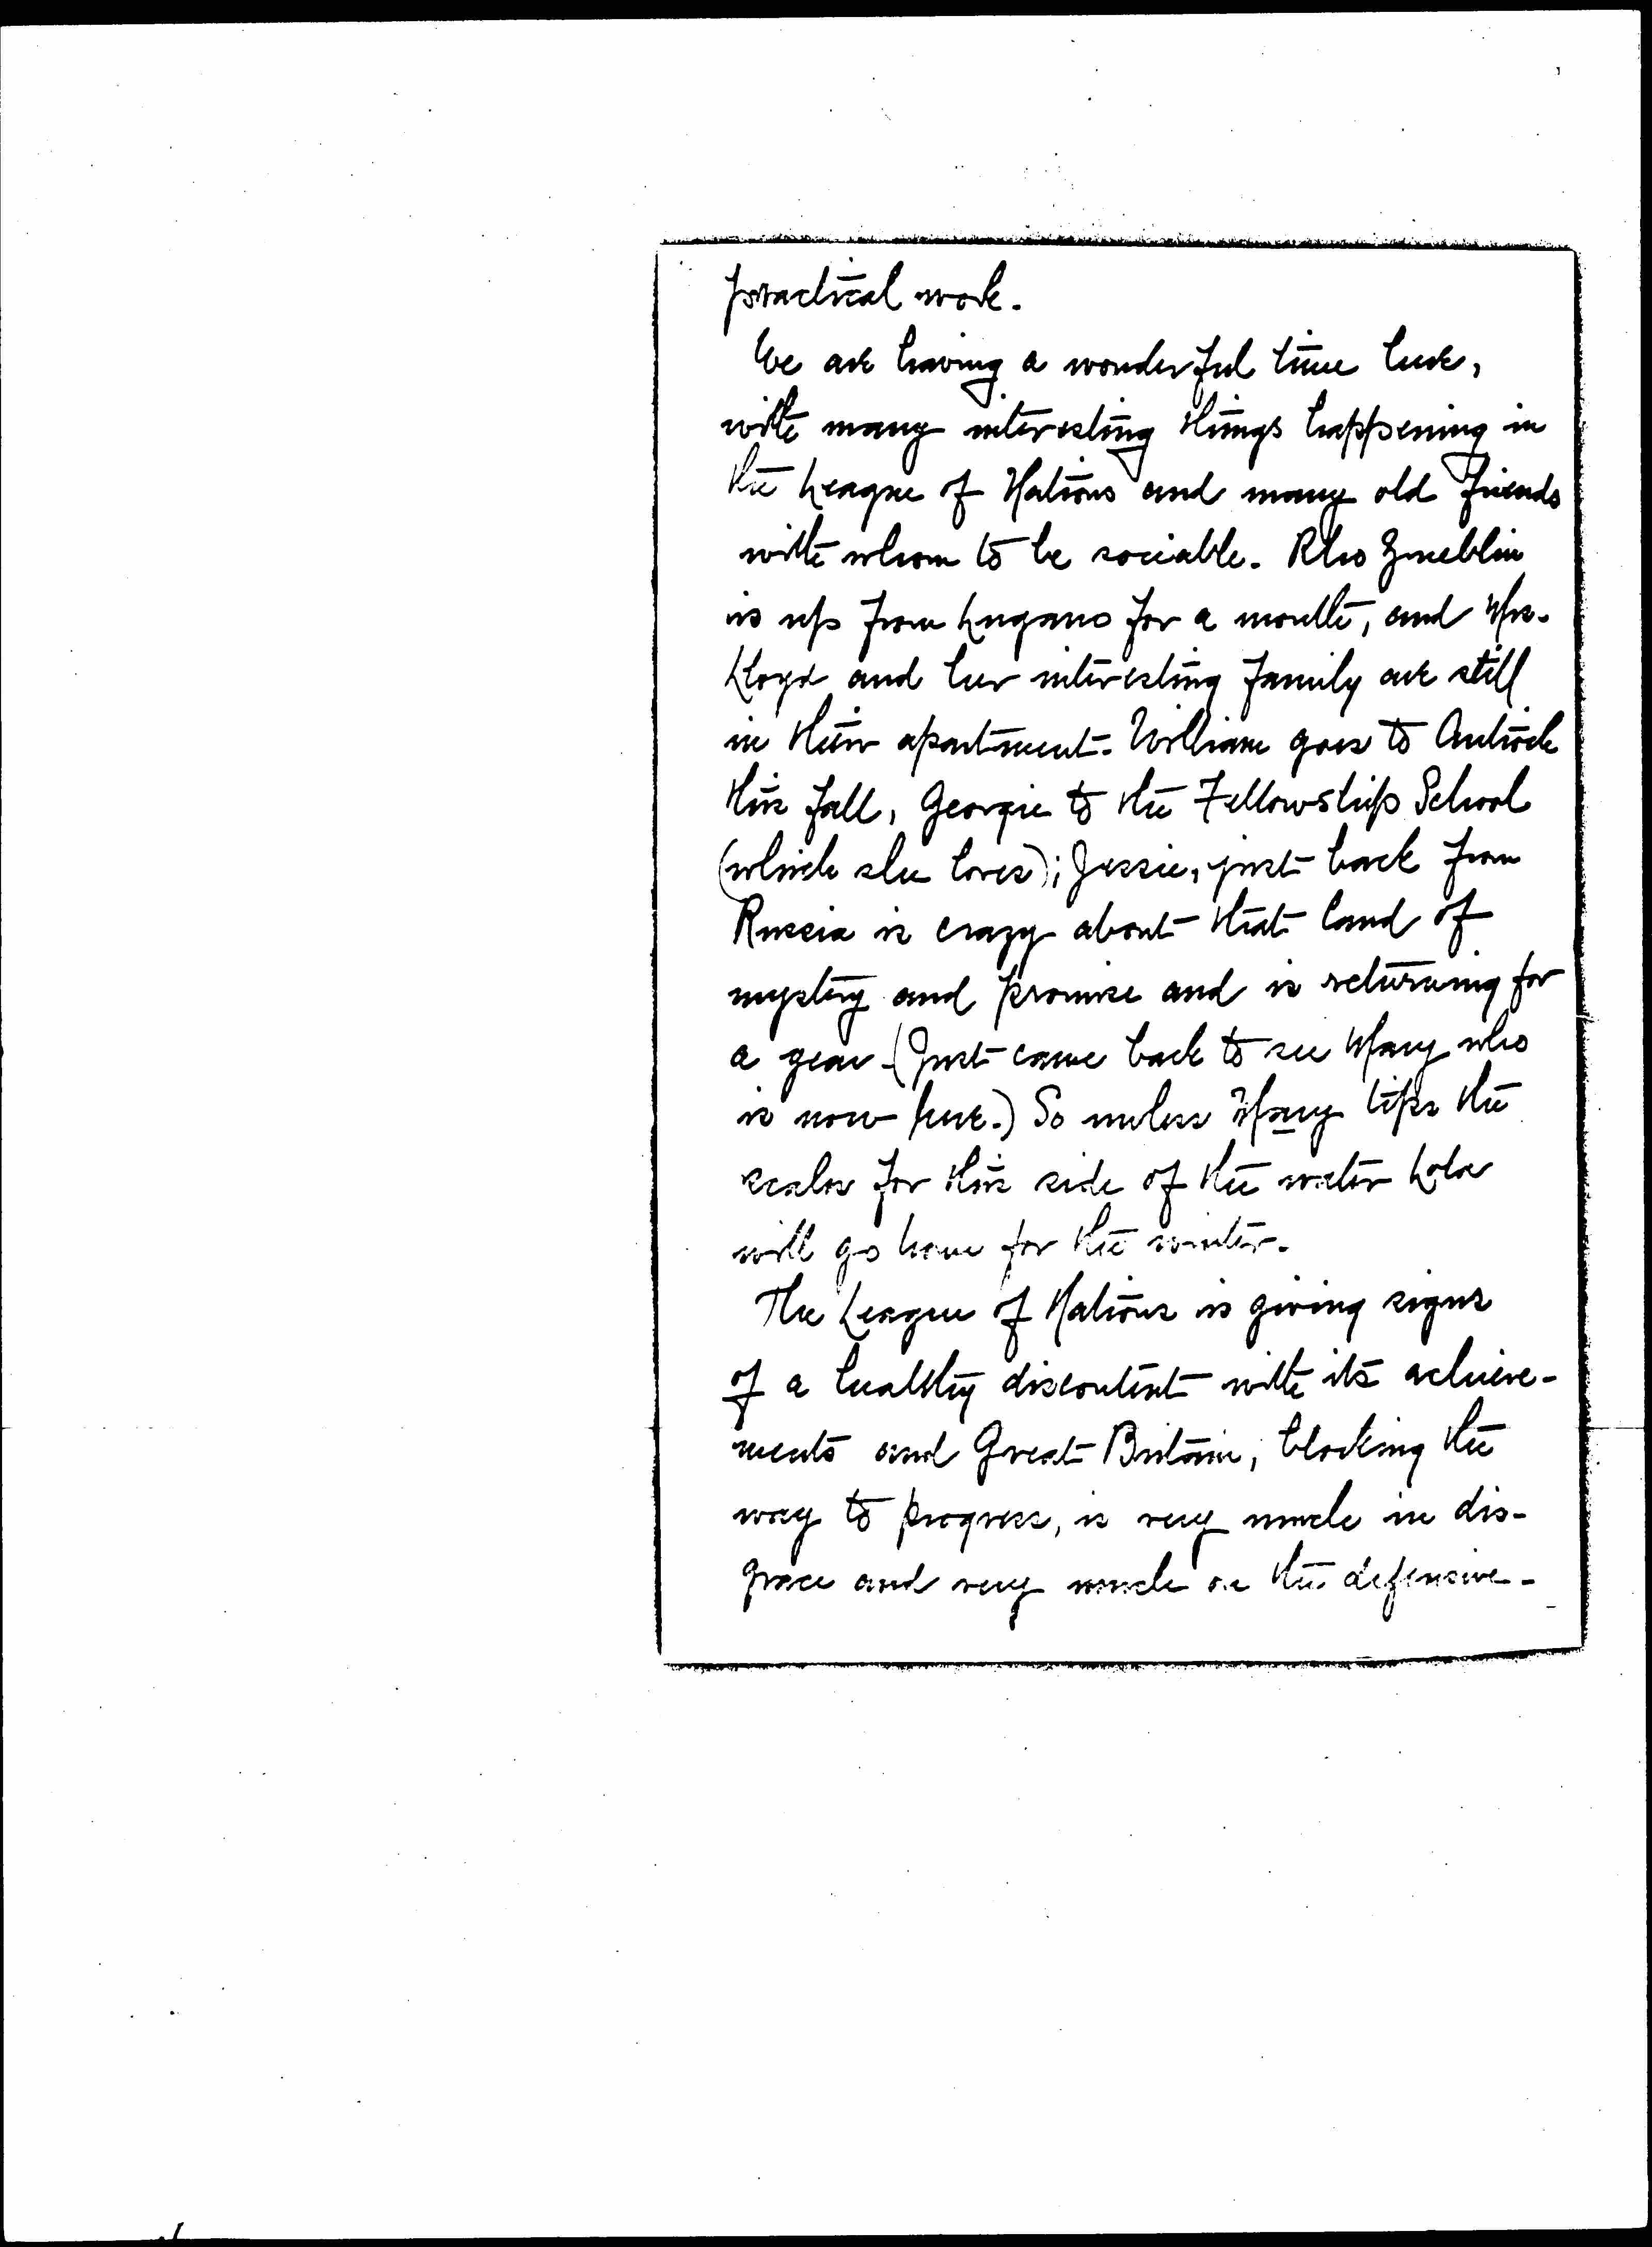 practical work.
We are having a wonderful time here,
with many interesting things happening in
the League of Nations and many old friends
with whom to be sociable. Rho Zueblin
is up from Lugano for a month, and Mrs.
Lloyd and her interesting family are still
in their apartment. William goes to Antioch
this fall, Georgie to the Fellowship School
(which she loves); Jessie, just back from
Russia is crazy about that land of
mystery and promise and is returning for
a year. (Just came back to see Mary who
is now here.) So unless Mary tips the
scales for this side of the water Lola
will go home for the winter.
The League of Nations is giving signs
of a healthy discontent with its achieve-
ments and Great Britain, blocking the
way to progress, is very much in dis-
grace and very much on the defensive.